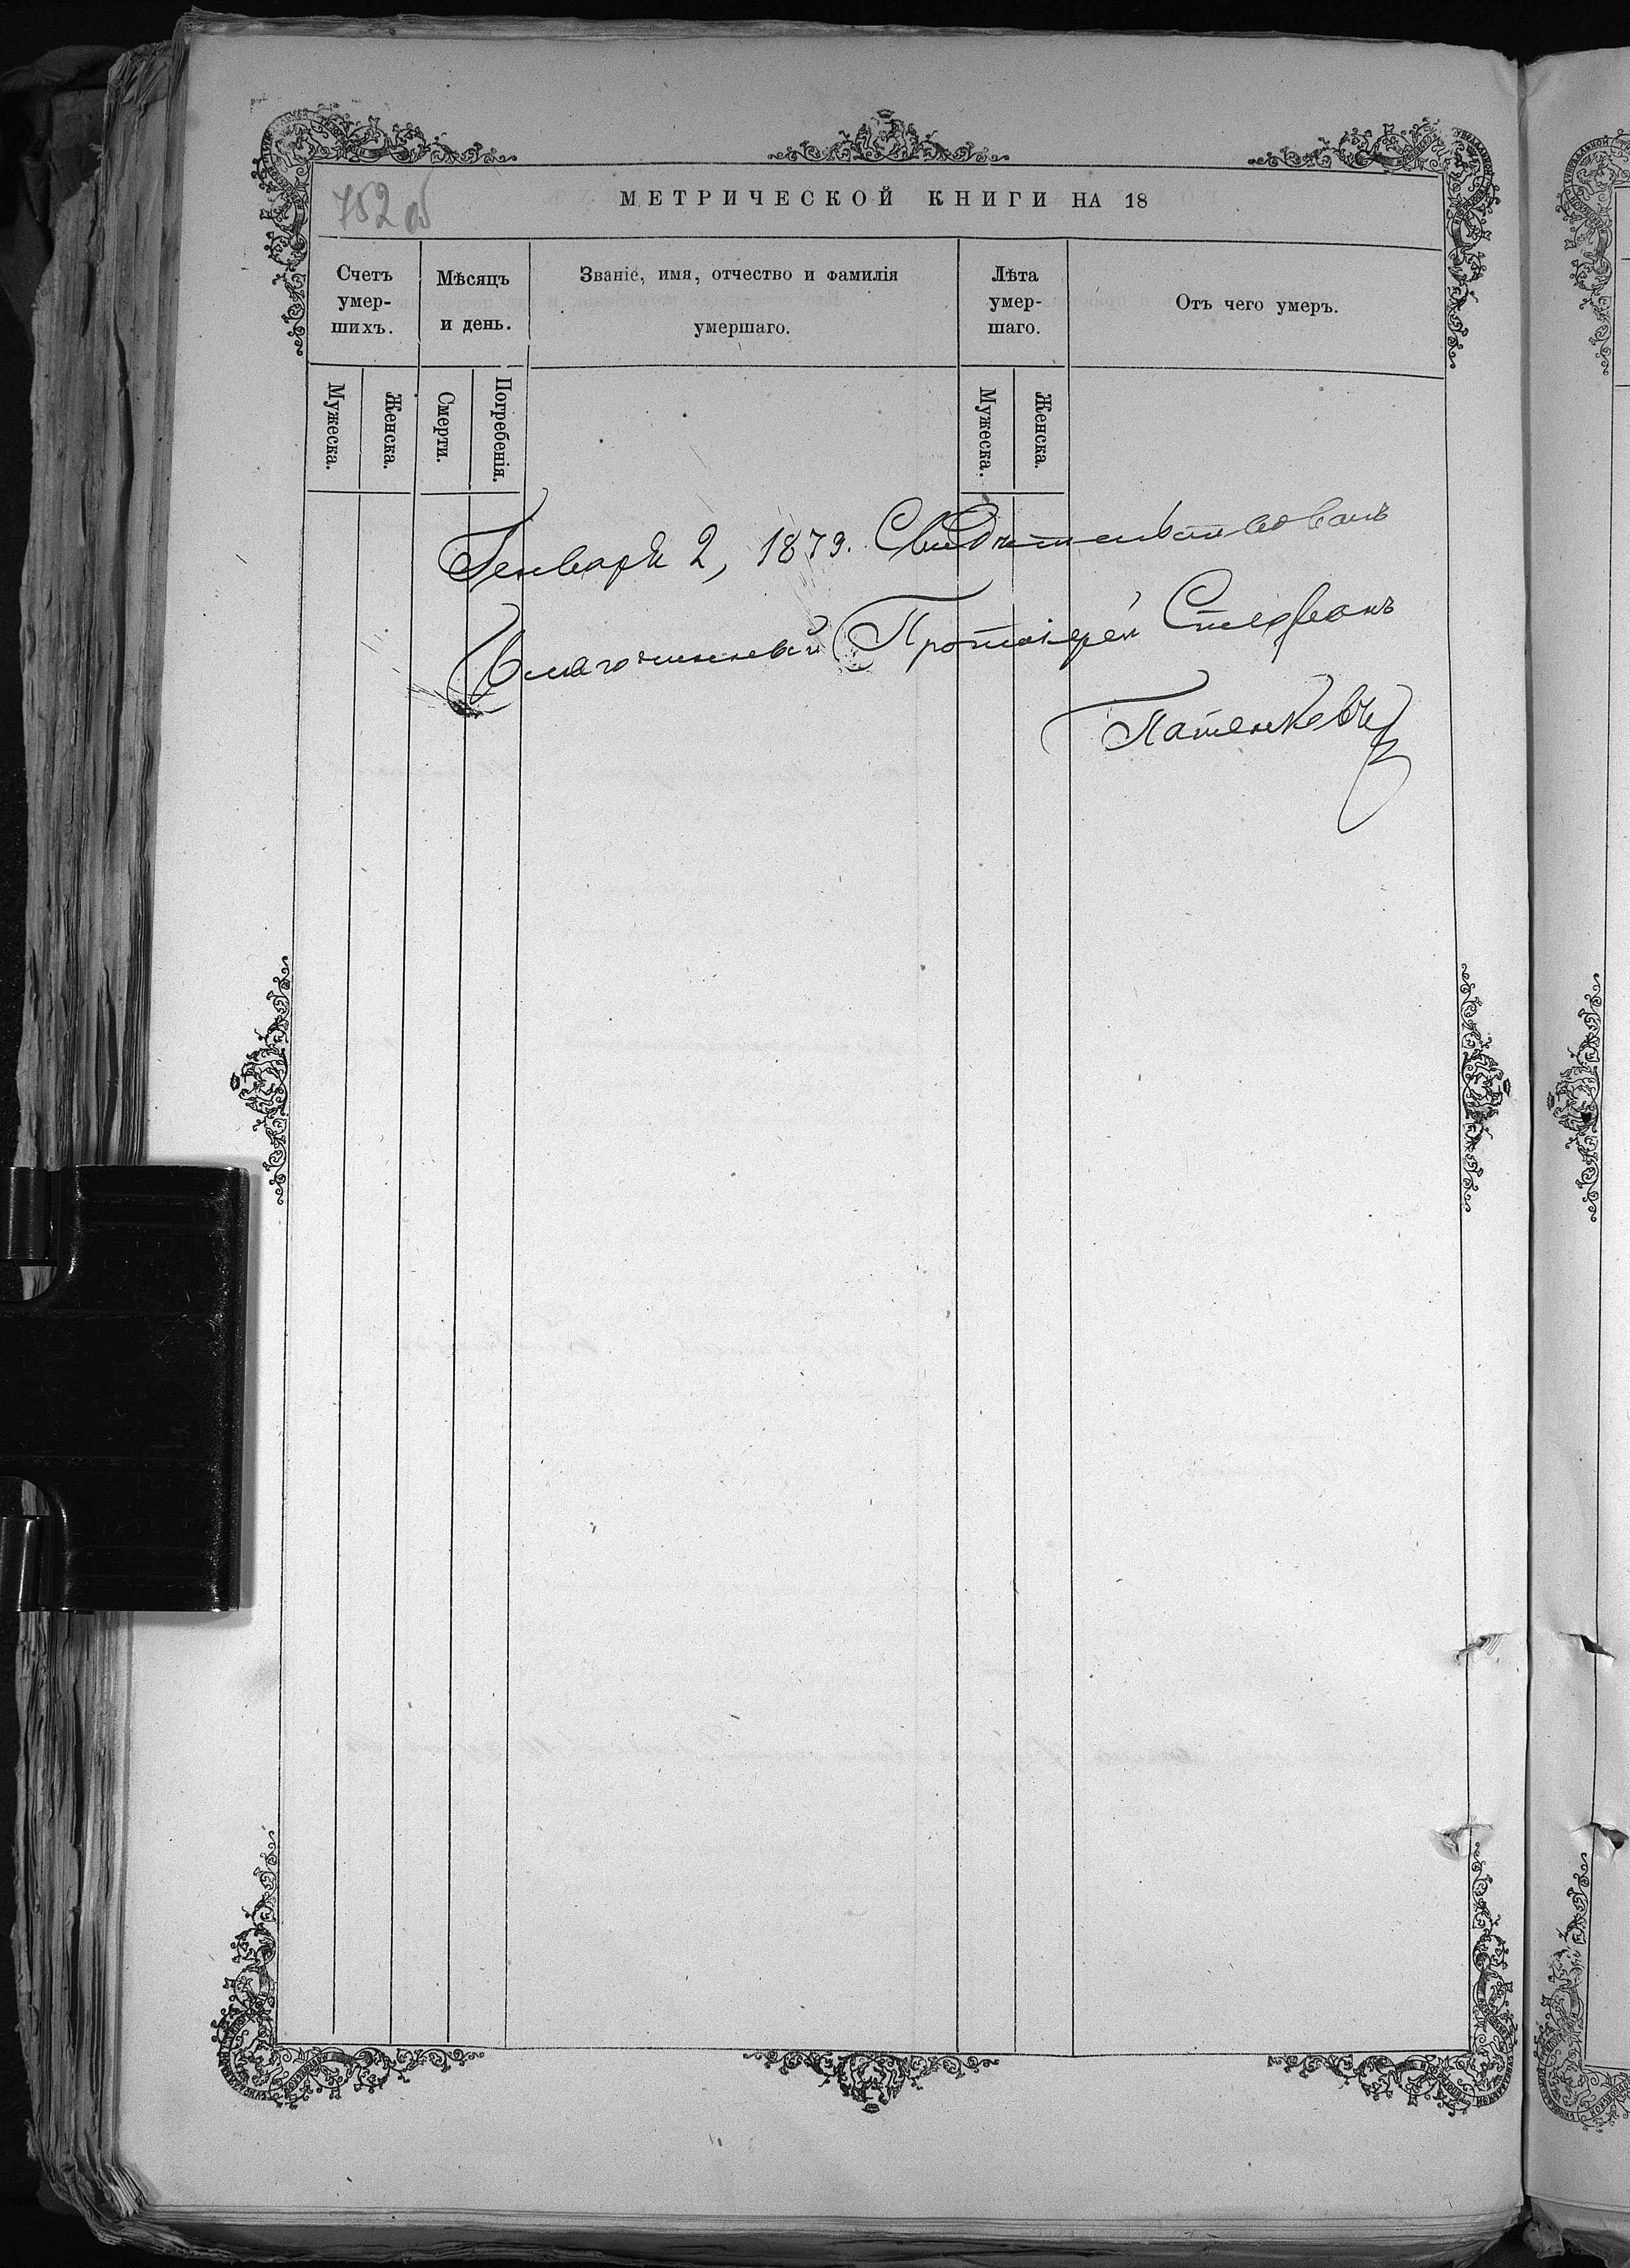 752 об
МЕТРИЧЕСКОЙ КНИГИ НА 18
Счетъ умер-шихъ.
Мѣсяцъ и день.
Званіе, имя, отчество и фамилія умершаго.
Лѣта умер-шаго.
Отъ чего умеръ.
Мужеска.
Женска.
Смерти.
Погребенія.
Мужеска.
Женска.
Генваря 2, 1879. Свидѣтельствовалъ
Благочинный Протоіерей Стефанъ